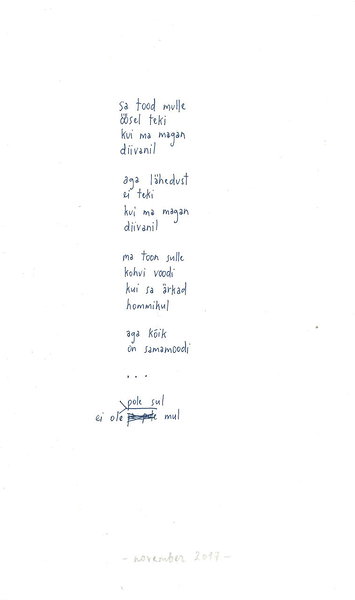 sa tood mulle
öösel teki
kui ma magan
diivanil
aga lähedust
ei teki
kui ma magan
diivanil
ma toon sulle
kohvi voodi
kui sa ärkad
hommikul
aga kõik
on samamoodi
...
pole sul
ei ole mul
- november 2017 -